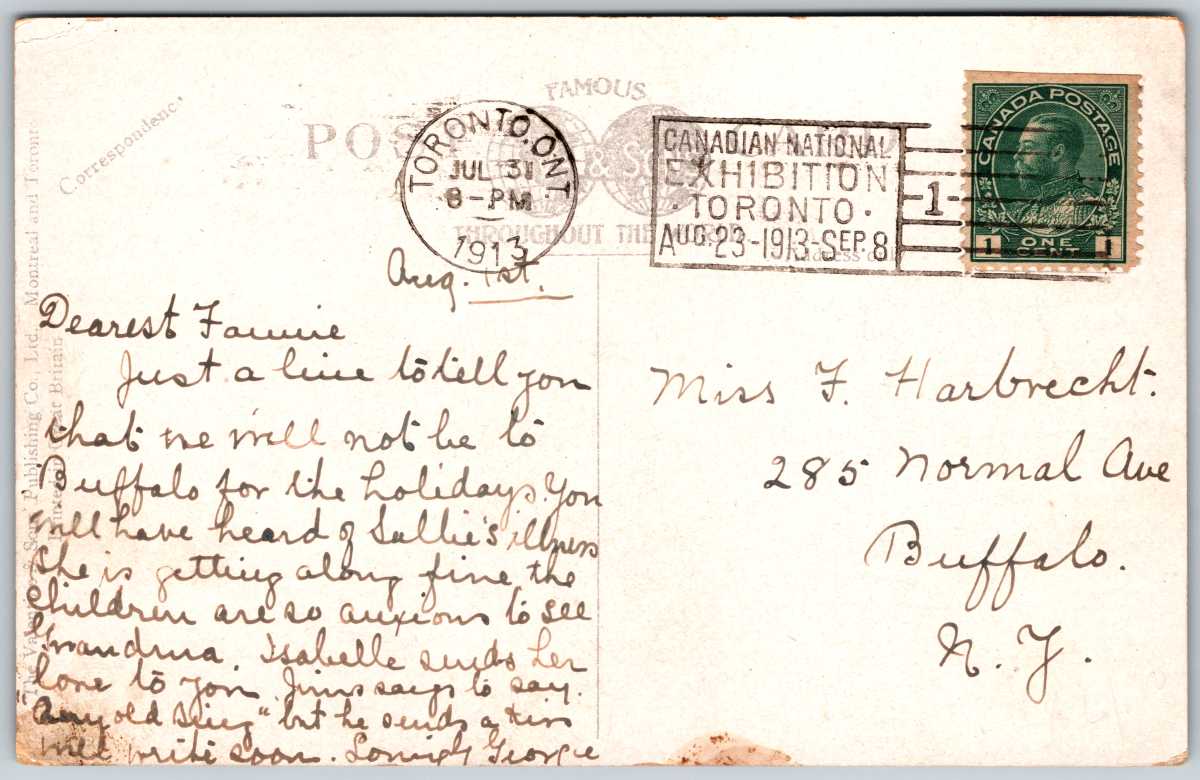 Correspondence
FAMOUS
POST CARD
& Sons
THROUGHOUT THE WORLD
TORONTO, ONT.
JUL 31
8-PM
1913
CANADIAN NATIONAL
EXHIBITION
· TORONTO ·
AUG. 23-1913-SEP. 8
1
CANADA POSTAGE
1 ONE CENT 1
The Valentine & Sons' Publishing Co., Ltd., Montreal and Toronto
Printed in Great Britain
Aug. 1st.
Dearest Fannie
Just a line to tell you
that we will not be to
Buffalo for the holidays. You
will have heard of Sallie's illness
She is getting along fine, the
Children are so anxious to see
Grandma. Isabelle sends her
love to you. Jims says to say.
"Any old thing" but he sends a kiss
will write soon. Lovingly Georgie
Miss F. Harbrecht.
285 Normal Ave
Buffalo.
N. Y.